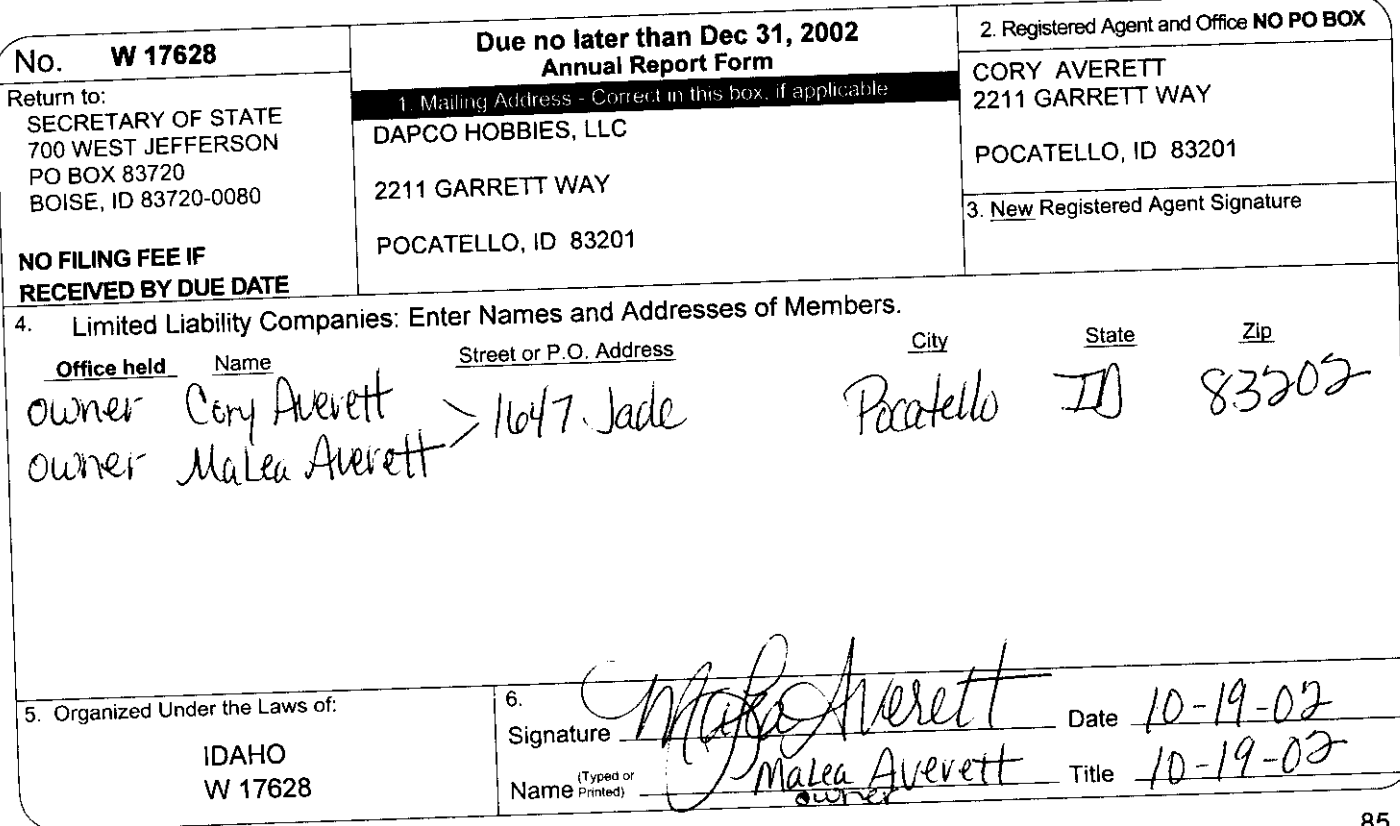 No. W 17628
Return to:
SECRETARY OF STATE
700 WEST JEFFERSON
PO BOX 83720
BOISE, ID 83720-0080
NO FILING FEE IF
RECEIVED BY DUE DATE
Due no later than Dec 31, 2002
Annual Report Form
1. Mailing Address - Correct in this box, if applicable
DAPCO HOBBIES, LLC
2211 GARRETT WAY
POCATELLO, ID 83201
2. Registered Agent and Office NO PO BOX
CORY AVERETT
2211 GARRETT WAY
POCATELLO, ID 83201
3. New Registered Agent Signature
4. Limited Liability Companies: Enter Names and Addresses of Members.
Office held Name Street or P.O. Address City State Zip
owner Cory Averett 1647 Jade Pocatello ID 83202
owner MaLea Averett
5. Organized Under the Laws of:
IDAHO
W 17628
6.
Signature MaLea Averett Date 10-19-02
Name (Typed or Printed) MaLea Averett Title 10-19-02
owner
85